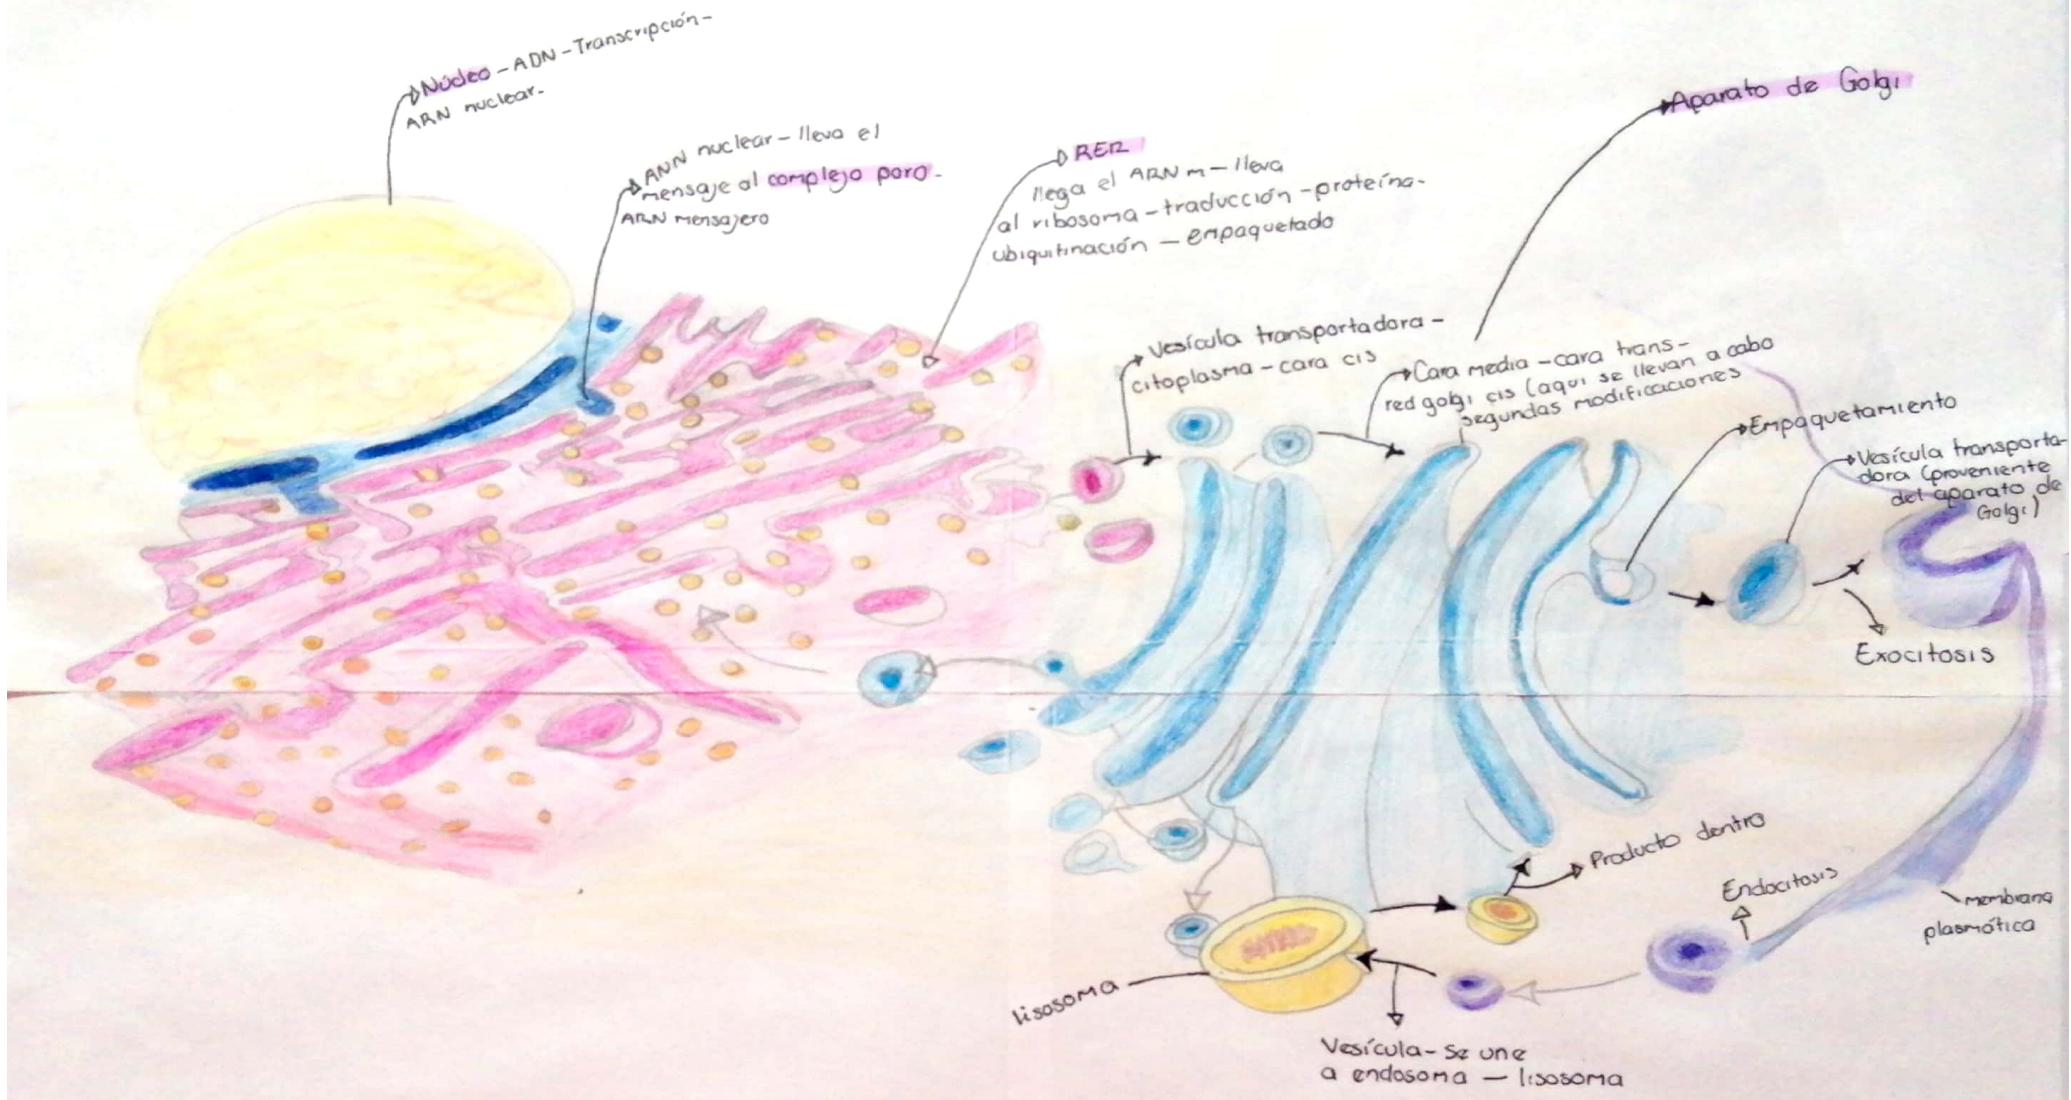 Núcleo - ADN - Transcripción -
ARN nuclear.
ANN nuclear - lleva el
mensaje al complejo poro.
ARN mensajero
RER
llega el ARN m - lleva
al ribosoma - traducción - proteína.
ubiquitinación - empaquetado
Aparato de Golgi
Vesícula transportadora -
citoplasma - cara cis
Cara media - cara trans -
red golgi cis (aqui se llevan a cabo
segundas modificaciones
Empaquetamiento
Vesícula transporta-
dora (proveniente
del aparato de
Golgi)
Exocitosis
Producto dentro
Endocitosis
membrana
plasmática
lisosoma
Vesícula - se une
a endosoma - lisosoma